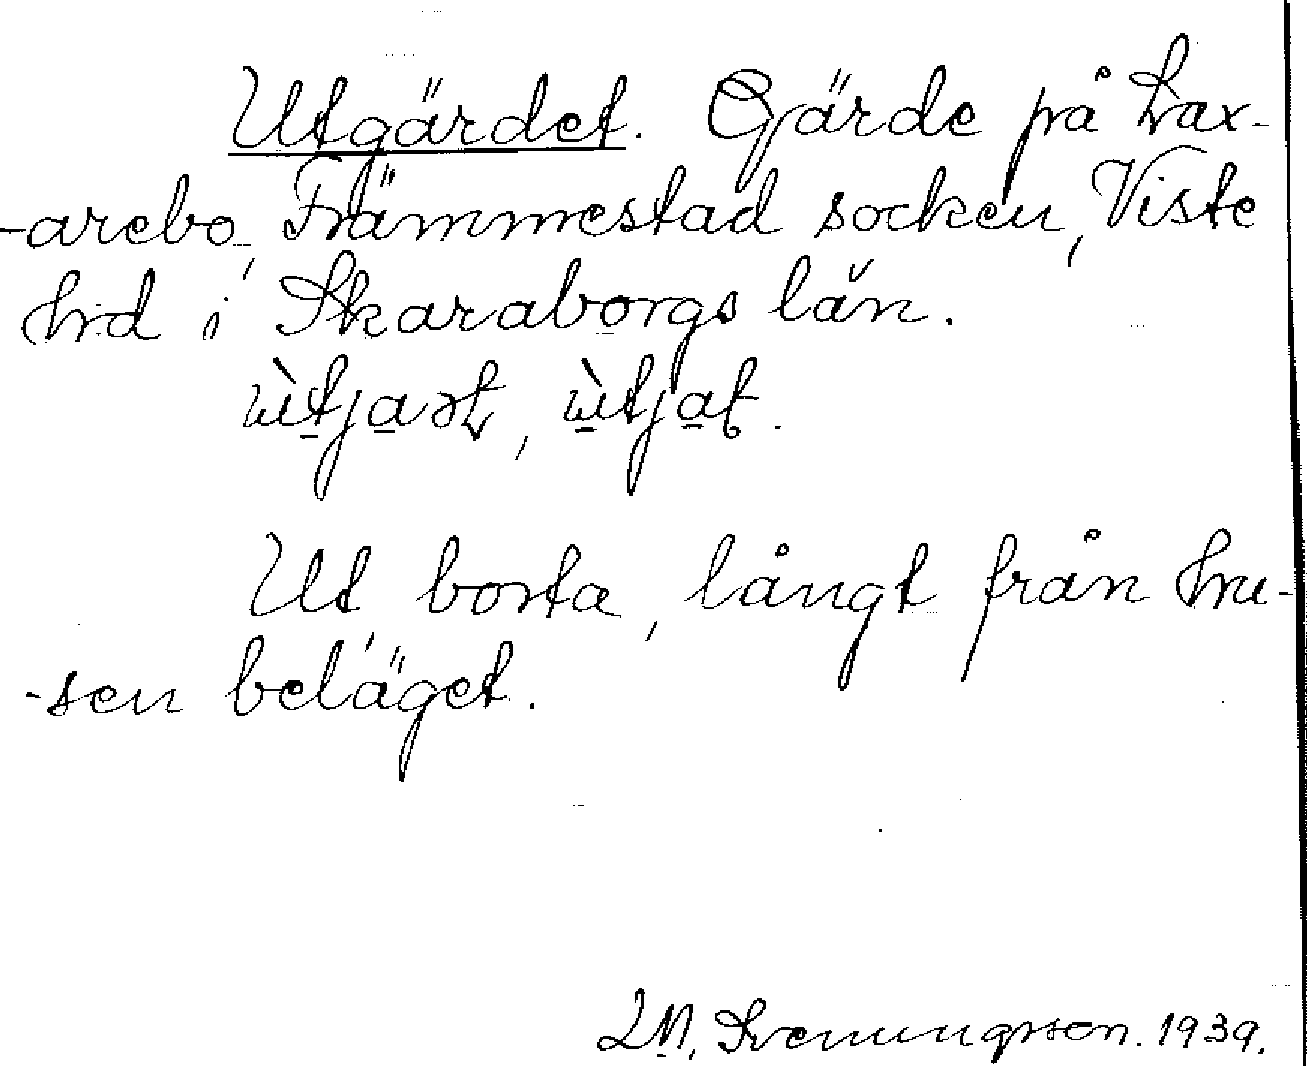 Utgärdet. Gärde på Lax-
-arebo, Främmestad socken, Viste
hrd i Skaraborgs län.
Ut, borta, långt från hu-
-sen beläget.
Svenungsson. 1939.